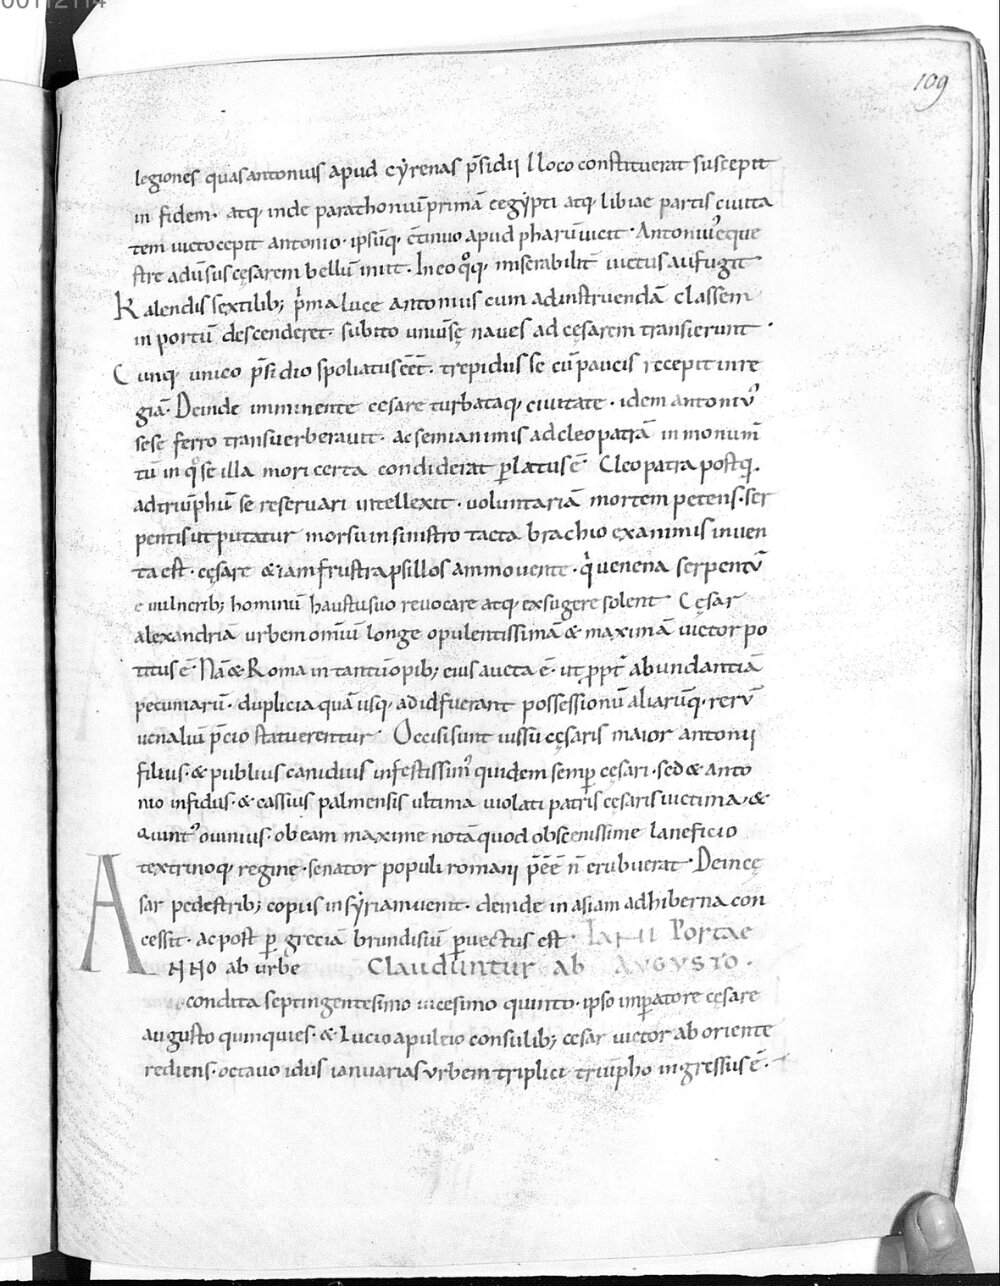 00112114
109
legiones quas antonius apud cẏrenas p̄sidii lloco constituerat suscepit
in fidem · atq; inde parathoniū primā eegẏpti atq; libiae partis ciuita
tem uicto cepit antonio · ipsūq; c̄tinuo apud pharū uicit · Antoniuꝰ eque
stre adūsus cęsarem bellū iniit · In eo qͦq; miserabilit̄ uictus aufugit
Kalendis sextilib; p̓ma luce antonius cum ad instruendā classem
in portū descenderet · subito uniuersę naues ad cęsarem transierunt ·
Cunq; unico p̄sidio spoliatus eēt · trepidus se cū paucis recepit in re
giā · Deinde imminente cesare turbataq; ciuitate · idem antoniꝰ
sese ferro transuerberauit · ac semianimis ad cleopatrā in monum̄
tū in qͦ se illa mori certa condiderat p̱latus ē · Cleopatra postq̄
ad triūphū se reseruari intellexit · uoluntariā mortem petens · ser
pentis ut putatur morsu in sinistro tacta brachio exanimis inuen
ta est · cęsare & iam frustra psillos ammouente · q̓ uenena serpentū
e uulnerib; hominū haustu suo reuocare atq; exsugere solent Cęsar
alexandriā urbem omniū longe opulentissimā & maximā uictor po
titus ē · Nā & Roma in tantū opib; eius aucta ē · ut ppt̄ abundantiā
pecuniarū · duplicia quā usq; ad id fuerant possessionū aliarūq; rerū
uenaliū p̄cia statuerentur · Occisi sunt iussu cęsaris maior antonii
filius · & publius canidius infestissimꝰ quidem semp̱ cęsari · sed & anto
nio infidus · & cassius palmensis ultima uiolati patris cesaris uictima · &
Quintꝰ ouinius · ob eam maxime notā quod obscenissime laneficio
textrinoq; regine · senator populi romani p̄eēē n̄ erubuerat · Dein cę
sar pedestrib; copiis in sẏriam uenit · deinde in asiam ad hiberna con
cessit · ac post p̱ greciā brundisiū p̱uectus est · IANI Portae
ANNO ab urbe Clauduntur ab AUGUSTO ·
condita septingentesimo uicesimo quinto · ipso imp̱atore cęsare
augusto quinquies · & Lucio apuleio consulib; cesar uictor ab oriente
rediens · octauo idus ianuarias urbem triplici triūpho ingressus ē ·